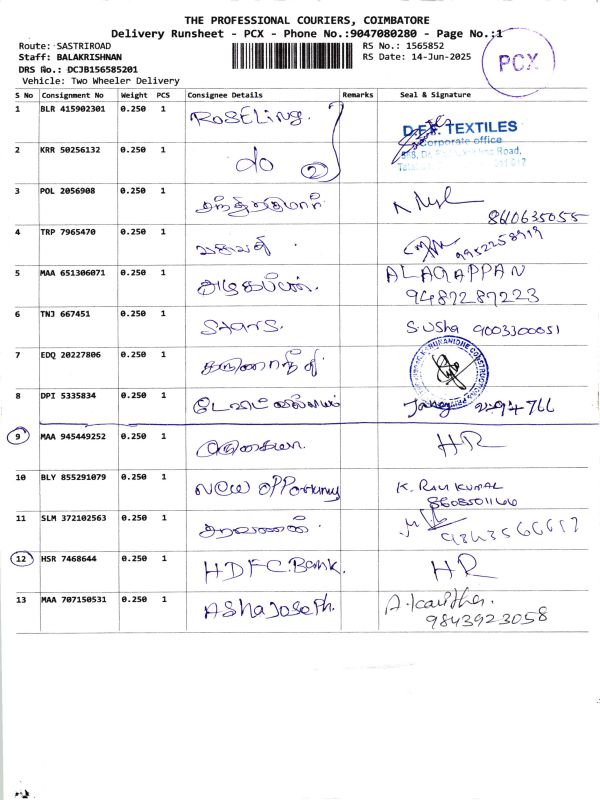 THE PROFESSIONAL COURIERS, COIMBATORE
Delivery Runsheet - PCX - Phone No.:9047080280 - Page No.:1
Route: SASTRIROAD
RS No.: 1565852
Staff: BALAKRISHNAN
RS Date: 14-Jun-2025
DRS No.: DCJB156585201
Vehicle: Two Wheeler Delivery
PCX
S No Consignment No Weight PCS Consignee Details Remarks Seal & Signature
1 BLR 415902301 0.250 1 ROSELing.
D.E.F. TEXTILES
Corporate office
2 KRR 50256132 0.250 1 do 2
3 POL 2056908 0.250 1
4 TRP 7965470 0.250 1 9952258919
5 MAA 651306071 0.250 1 அழகப்பன். ALAGAPPAN
9487287223
6 TNJ 667451 0.250 1 Stars. S.Usha 9003300051
7 EDQ 20227806 0.250 1
8 DPI 5335834 0.250 1
9 MAA 945449252 0.250 1 HR
10 BLY 855291079 0.250 1 New OPPortunity K. RAVI KUMAR
11 SLM 372102563 0.250 1 சரவணன்.
12 HSR 7468644 0.250 1 HDFC.Bank. HR
13 MAA 707150531 0.250 1 Asha Joseph. A.
9843923058